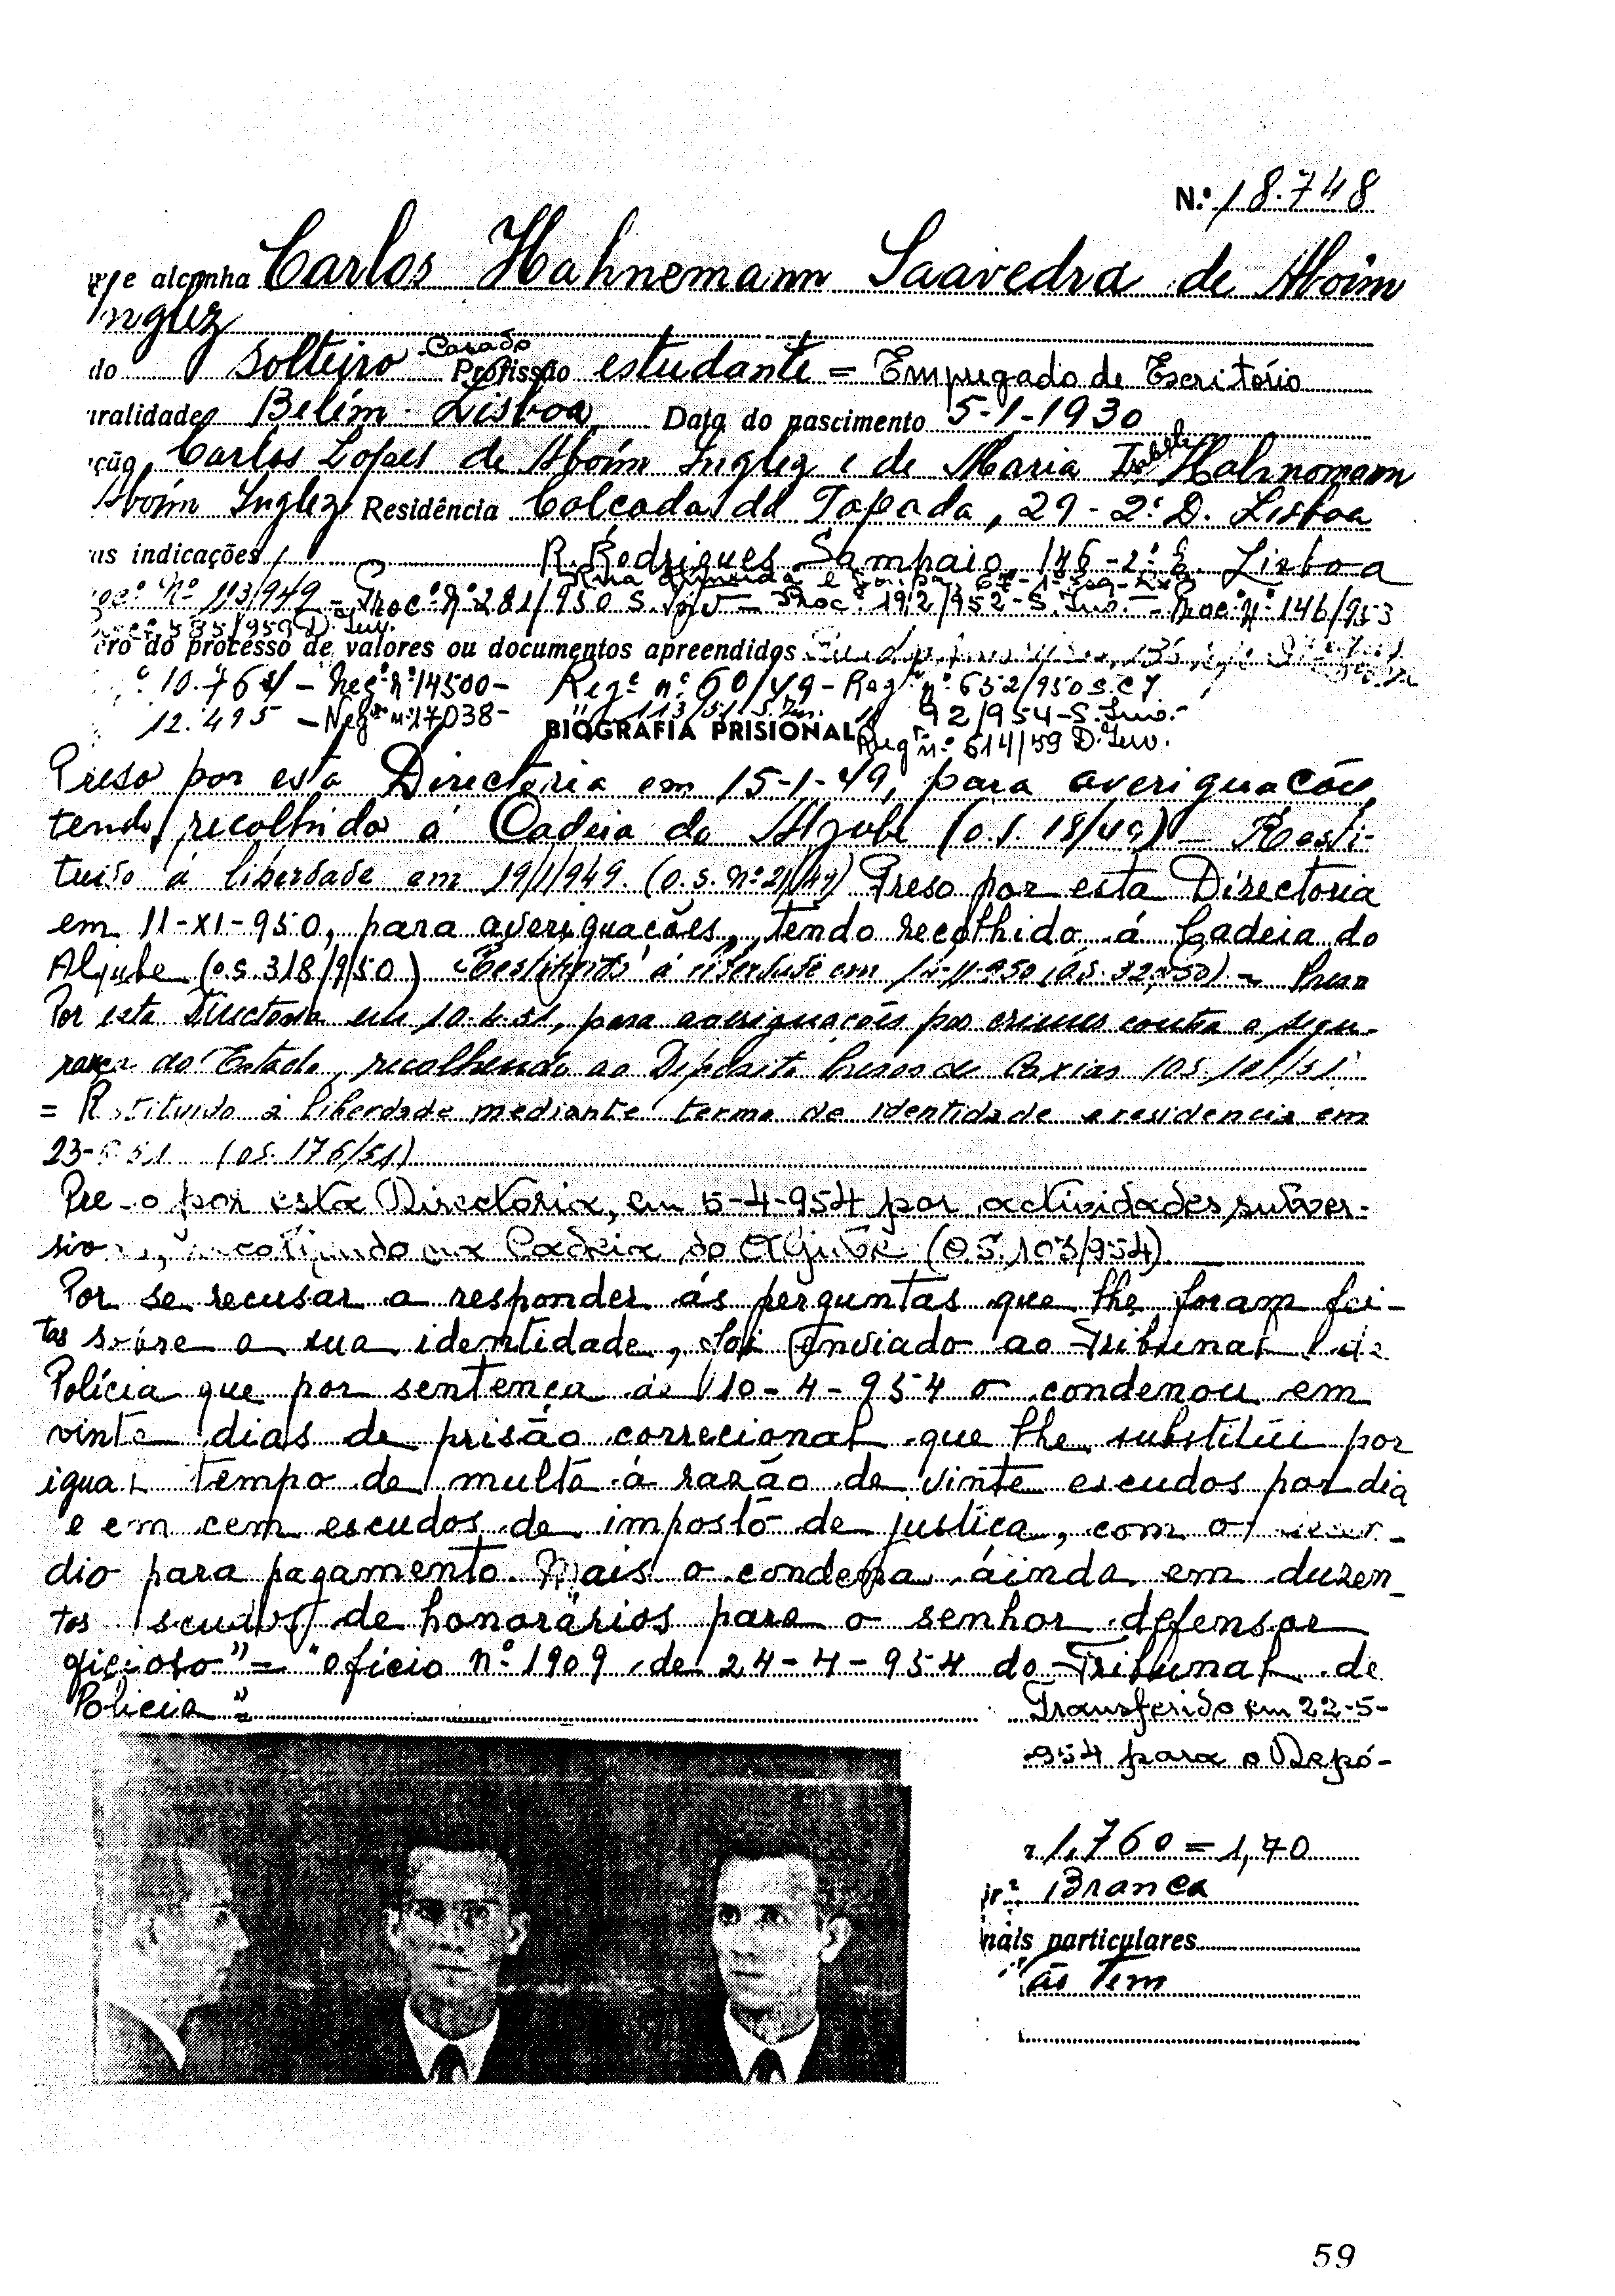 N.º 18.748
e alcunha Carlos Hahnemann Saavedra de Aboim
Inglez
do Solteiro Casado Profissão estudante = Empregado de Escritório
uralidade Belém - Lisboa Data do nascimento 5-1-1930
ção Carlos Lopes de Aboim Inglez e de Maria Isabel Hahnemann
Aboim Inglez Residência Calçada da Tapada, 29-2º D. Lisboa
as indicações R. Rodrigues Sampaio, 146-2º E. Lisboa
Nº 113/949 - Proc.º Nº 281/950 S. Inv - Proc.º 192/952-S. Inv. - Proc.º Nº 146/953
535/959 D. Inv.
ro do processo de valores ou documentos apreendidos
10.764 - Neg.º nº 14500 - Reg.º nº 60/49 - Reg.º nº 652/950 S.C.I.
12.495 - Neg.º nº 17038 - 113/51 S. Inv. " 92/954-S. Inv.
BIOGRAFIA PRISIONAL Reg nº 614/59 D. Inv.
Preso por esta Directoria em 15-1-49, para averiguações,
tendo recolhido á Cadeia do Aljube (o.s. 18/49) - Resti-
tuido á liberdade em 19/1/949. (o.s. nº 21/49) Preso por esta Directoria
em 11-XI-950, para averiguações, tendo recolhido á Cadeia do
Aljube (o.s. 318/950) Restituido á liberdade em - Preso
Por esta Directoria em 10-4-51, para averiguações por crimes contra a segu-
rança do Estado, recolhendo ao Depósito Presos de Caxias (o.s. 101/51
= Restituido à liberdade mediante termo de identidade e residencia em
23- 51 (o.s. 176/51)
Preso por esta Directoria, em 5-4-954 por actividades subver-
sivas, recolhendo na Cadeia do Aljube (O.S. 103/954).
Por se recusar a responder ás perguntas que lhe foram fei-
tas sobre a sua identidade, foi enviado ao Tribunal de
Policia que por sentença de 10-4-954 o condenou em
vinte dias de prisão correcional que lhe substitúi por
igual tempo de multa á razão de vinte escudos por dia
e em cem escudos de imposto de justiça, com o
dio para pagamento. Mais o condena áinda em duzen-
tos escudos de honorários para o senhor defensor
oficioso" = "oficio nº 1909 de 24-4-954 do Tribunal de
Policia" Transferido em 22-5-
954 para o Depó-
1,760 = 1,70
Branca
nais particulares
Tem
59